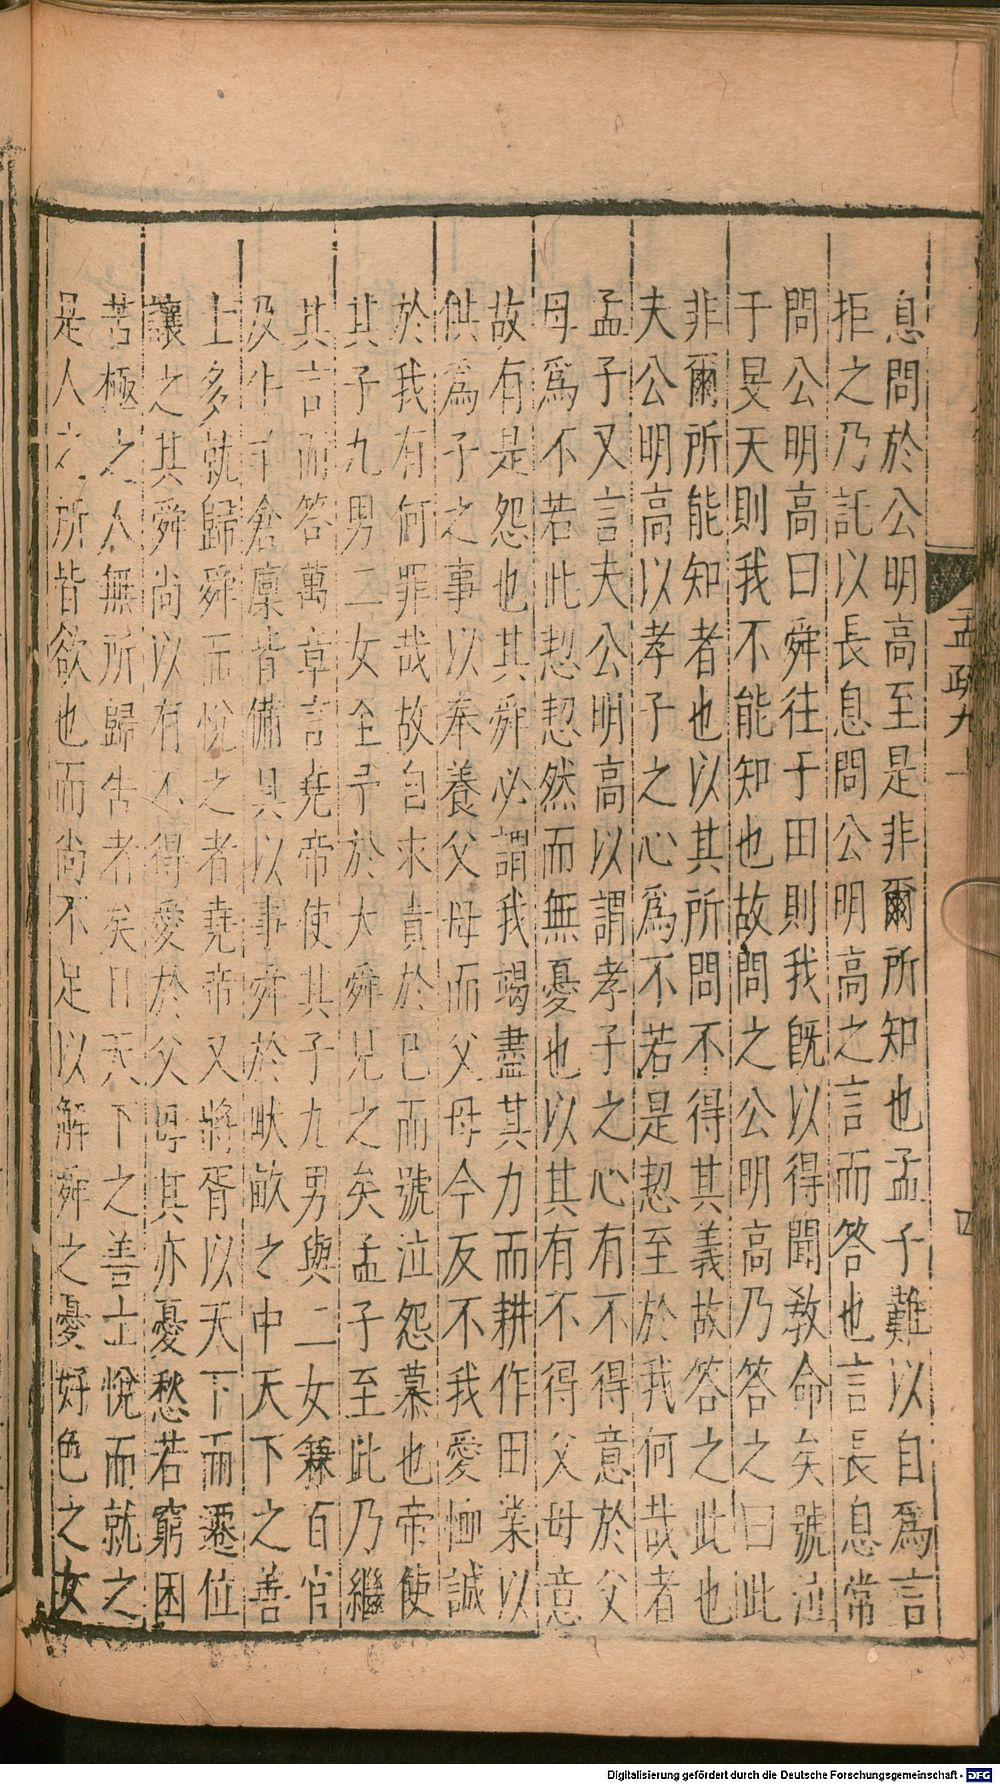 息問於公明高至是非爾所知也孟子難以自爲言
拒之乃託以長息問公明高之言而答也言長息常
問公明高曰舜往于田則我既以得聞教命矣號泣
于旻天則我不能知也故問之公明高乃答之曰此
非爾所能知者也以其所問不得其義故答之此也
夫公明高以孝子之心爲不若是恝至於我何哉者
孟子又言夫公明高以謂孝子之心有不得意於父
母爲不若此恝恝然而無憂也以其有不得父母意
故有是怨也其舜必謂我竭盡其力而耕作田業以
供爲子之事以奉養父母而父母今反不我愛恤誠
於我有何罪哉故自求責於己而號泣怨慕也帝使
其子九男二女全予於大舜見之矣孟子至此乃繼
其言而答萬章言堯帝使其子九男與二女兼百官
及牛羊倉廩皆備具以事舜於畎畝之中天下之善
士多就歸舜而悅之者堯帝又將胥以天下而遷位
讓之其舜尚以有不得愛於父母其亦憂愁若窮困
苦極之人無所歸告者矣曰天下之善士悅而就之
是人之所皆欲也而尚不足以解舜之憂好色之女
孟疏九上
四
Digitalisierung gefördert durch die Deutsche Forschungsgemeinschaft - DFG